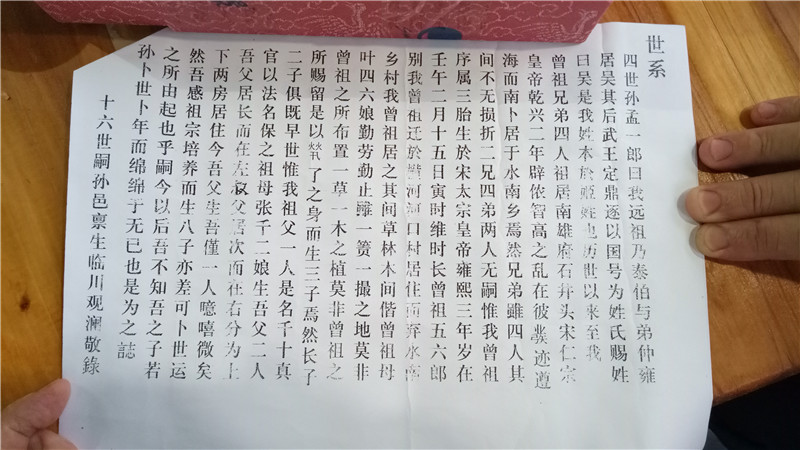 世系
四世孙孟一郎曰我远祖乃泰伯与弟仲雍
居吴其后武王定鼎逐以国号为姓氏赐姓
曰吴是我姓本於姬姓也历世以来至我
曾祖兄弟四人祖居南雄府石井头宋仁宗
皇帝乾兴二年辟侬智高之乱在彼发迹遵
海而南卜居于水南乡焉然兄弟雖四人其
间不无损折二兄四弟两人无嗣惟我曾祖
序属三胎生於宋太宗皇帝雍熙三年岁在
壬午二月十五日寅时维时长曾祖五六郎
别我曾祖迁於河河口村居住而弃水南
乡村我曾祖居之其间草林木间偕曾祖母
叶四六娘勤劳勤止雖一篑一撮之地莫非
曾祖之所布置一草一木之植莫非曾祖之
所赐留是以茕了之身而生三子焉然长子
二子俱既早世惟我祖父一人是名千十真
官以法名保之祖母张千二娘生吾父二人
吾父居长而在左叔父居次而在右分为上
下两房居住今吾父生吾僅一人噫嘻微矣
然吾感祖宗培养而生八子亦差可卜世运
之所由起也乎嗣今以后吾不知吾之子若
孙卜世卜年而绵绵于无已也是为之誌
十六世嗣孙邑禀生临川观澜敬錄